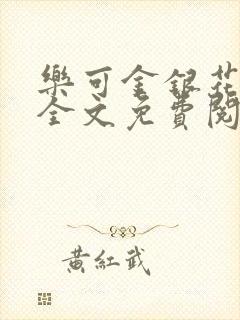 樂可金銀花
全文免費閱
黃紅武